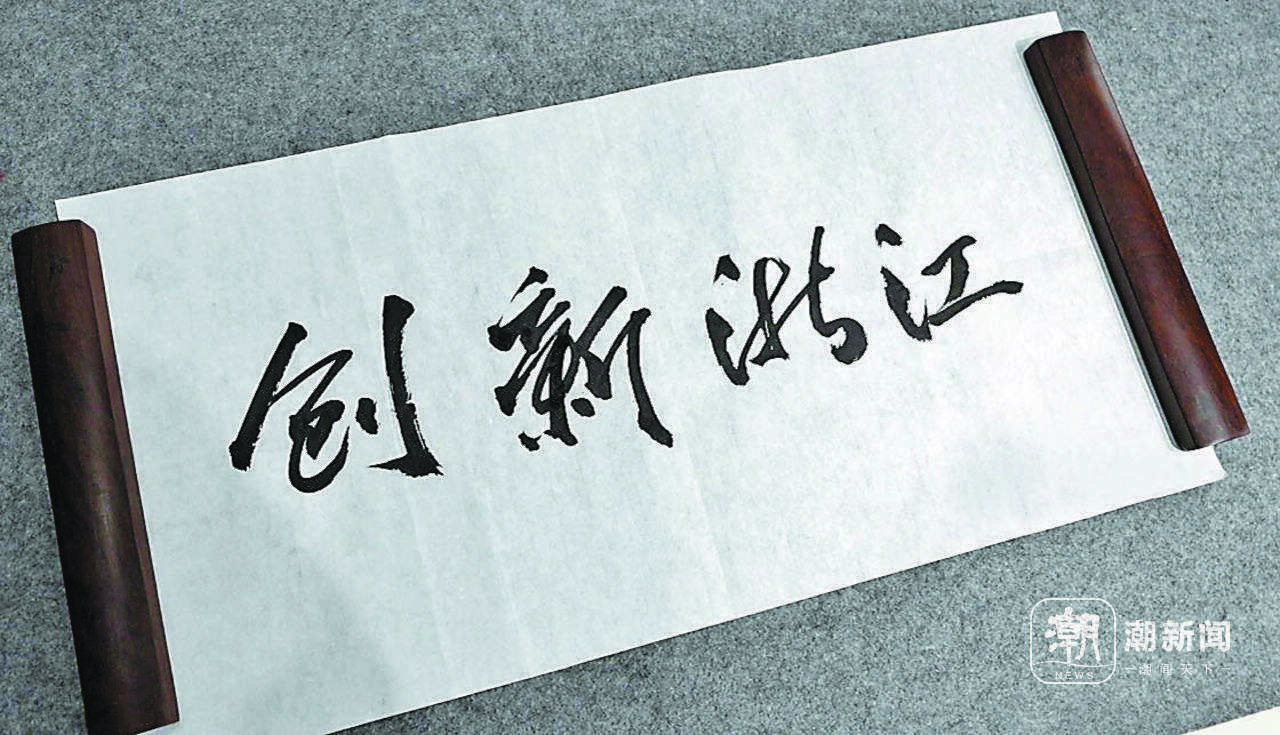 创新浙江
潮
NEWS
潮新闻
潮闻天下